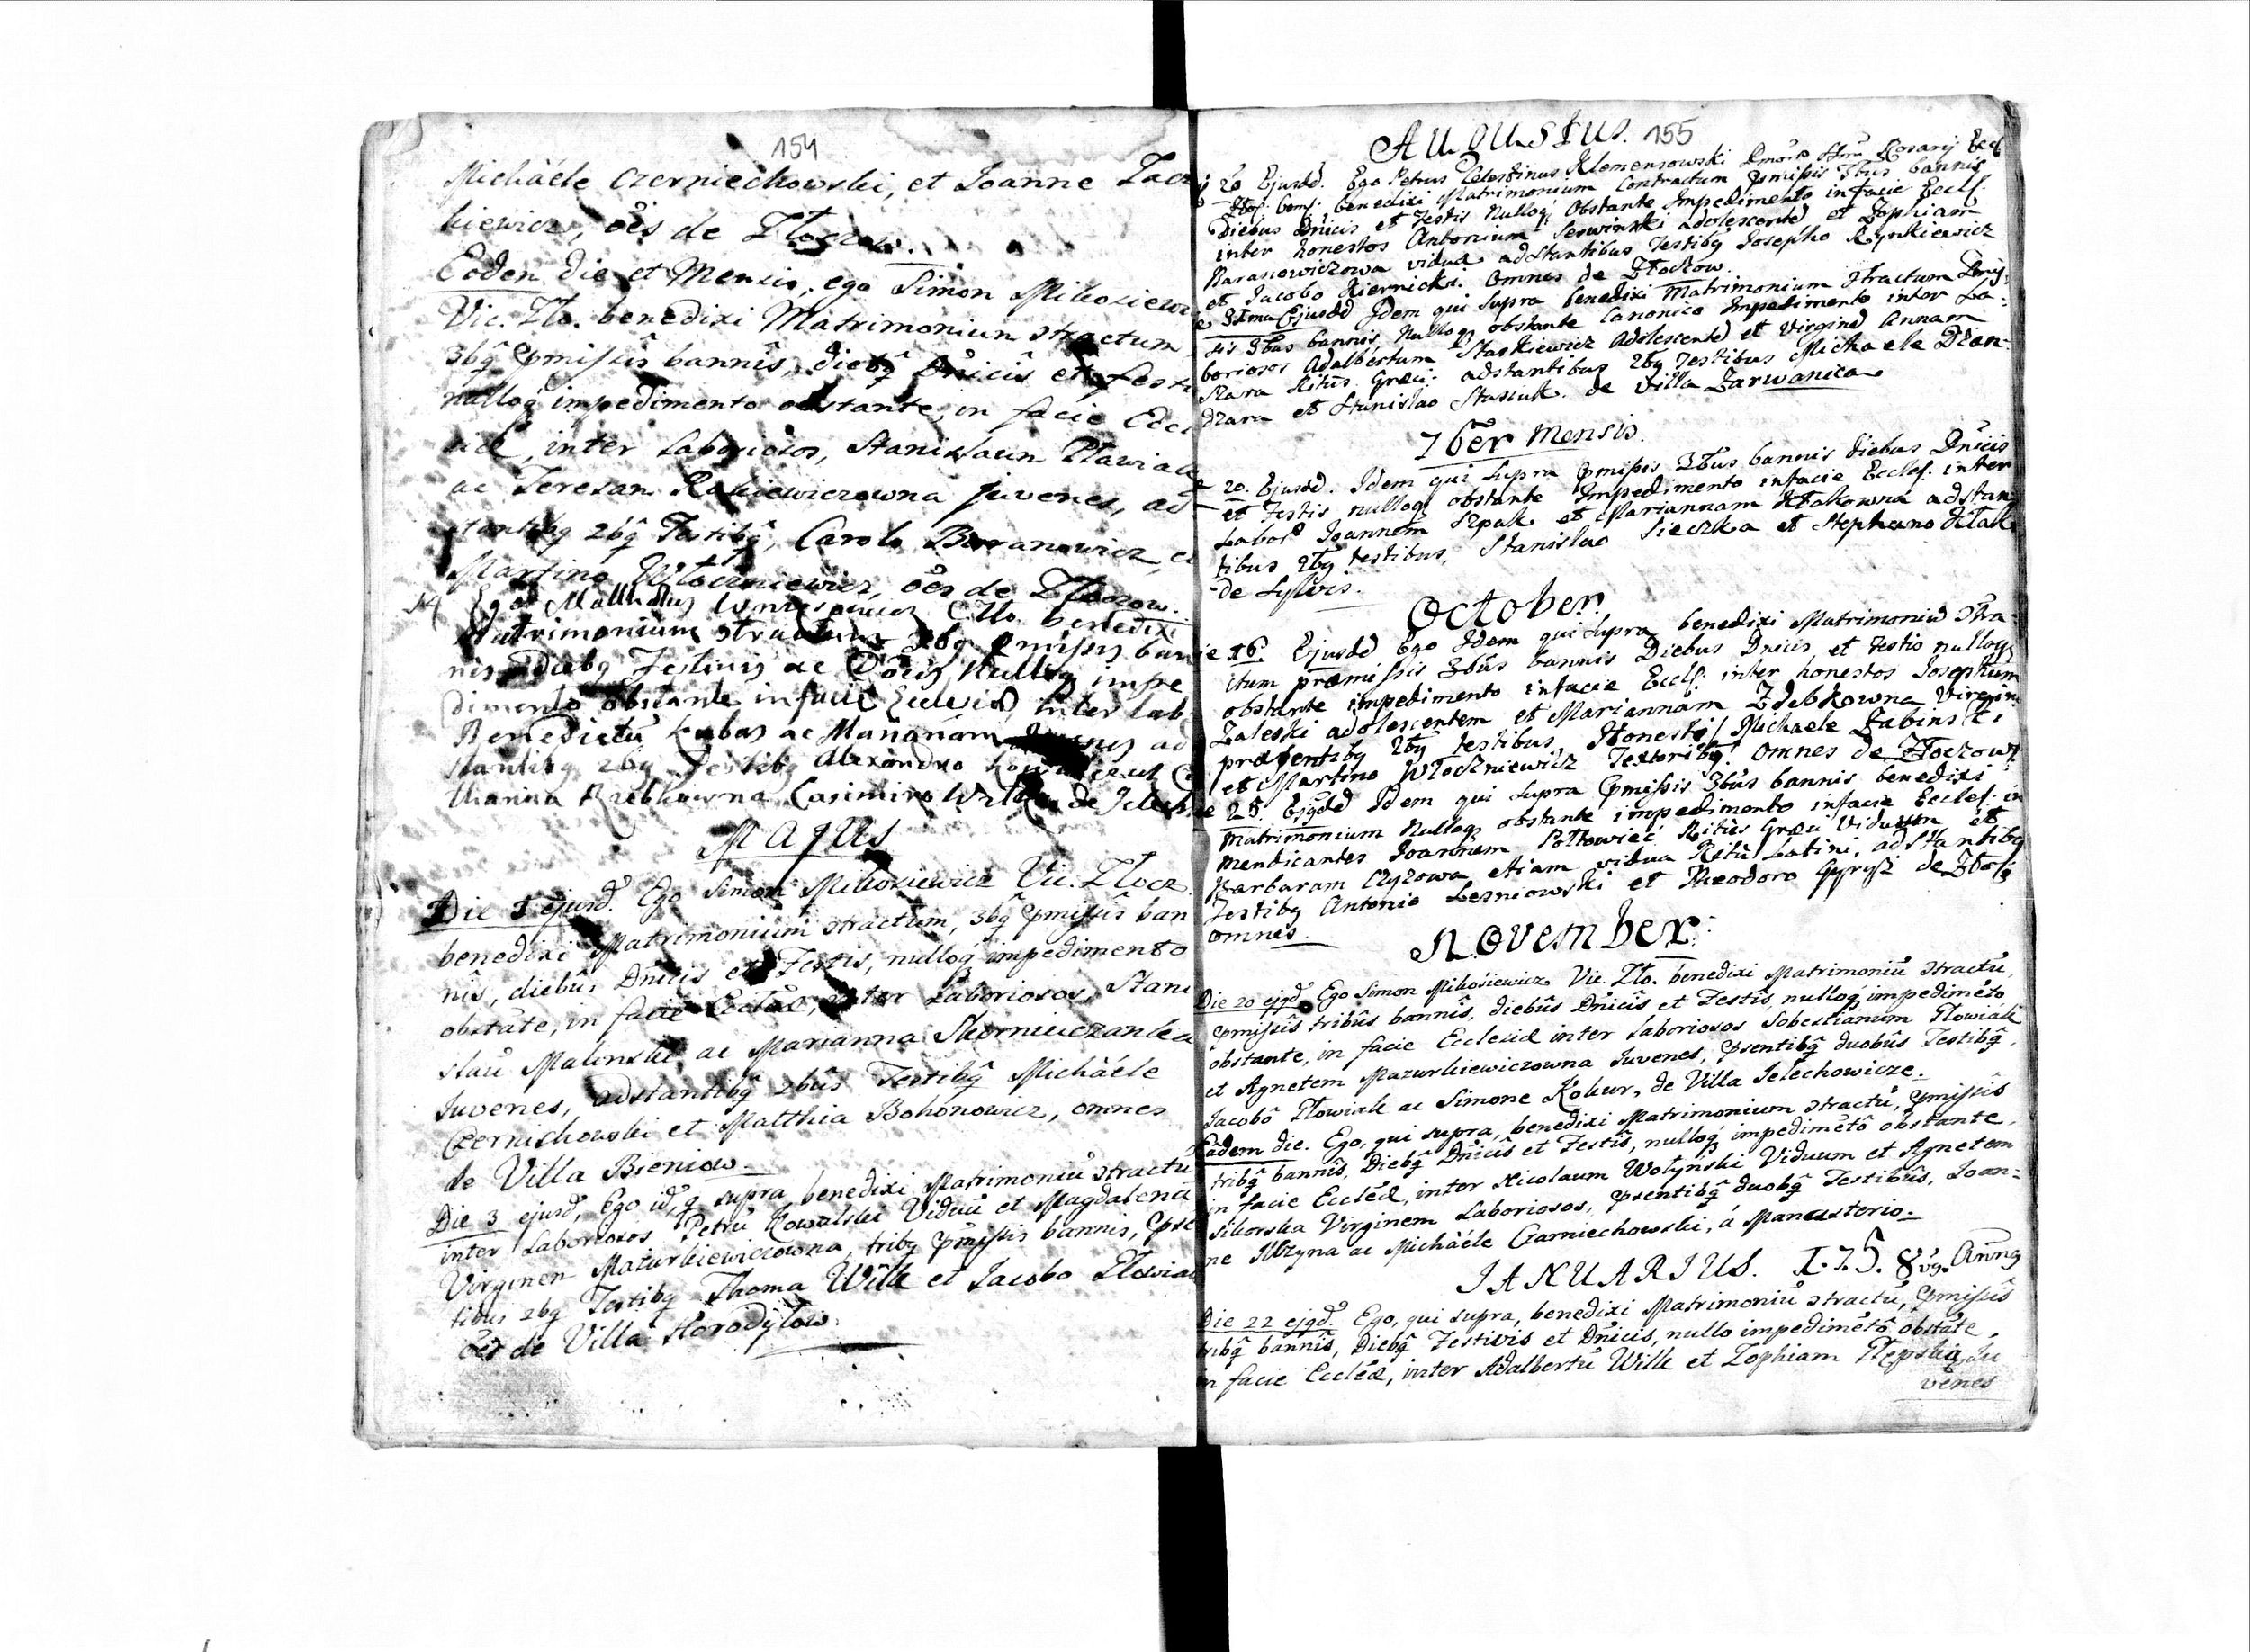 154
Michäéle Czerniechowski, et Joanne Zacz
kiewicz, oẽs de Złoczow.
Eoden die et Mensis, ego Simon Mikosiewicz
Vic. Zło. benedixi Matrimoniun ɔtractum
3bq̃ p̃missis bannis, diebq̃ Dnicis et festi
nulloq́ impedimento obstante, in facie Eccl
siæ, inter Laboriosos, Stanislaun Pławiak
ac Teresan Rakiewiczowna juvenes, ad
stantibq 2bq̃ Testibq̃, Carolo Baranowicz, et
Martino Włoczniewicz, oẽs de Złoczow.
14 Ego Matthæus CZło. benedixi
Matrimonium ɔtractum 3bq p̃missis ban
nis Diebq Festivis ac Dõcis Nulloq impe
dimento obstante in facie Ecclesiæ inter Lab
Benedictũ Kubas ac Marianam ad
stantibq 2bq Testibq Alexandro
Marina Casimiro de
MAJUS
Die 1 ejusd̃. Ego Simon Mikosiewicz Vic. Złocz.
benedixi Matrimoniũm ɔtractum, 3bq̃ p̃missis ban
nis, diebus Dnicis et Festis, nulloq́ impedimento
obstãte, in facie Eccłæ, inter Laboriosos, Stani
slaũ Malinski, ac Marianna Skorniewczanka
Juvenes, adstantibq̃ 2bus Testibq̃ Michäéle
Czernichowski et Matthia Bohonowicz, omnes
de Villa Bieniow.
Die 3 ejusd̃, Ego id̃, q̃ supra benedixi Matrimoniũ ɔtractũ
inter Laboriosos Petrũ Kowalski Viduũ et Magdalenã
Virginen Mazurkiewiczowna, tribq p̃missis bannis, p̃se
tibus 2bq Testibq Thoma Wilk et Jacobo Pławiak
oẽs de Villa Horodyłow.
AUGUSTUS. 155
20 Ejusdd. Ego Petrus Celestinus Klemensowski Rosarij Eccl
benedixi Matrimonium Contractum p̃missis 3bus bannis
Diebus Dnicis et Festis Nulloq̃ Obstante Impedimento in facie Eccls.
inter honestos Antonium Serwinski adolescentẽ et Zophiam
Baranowiczowa viduã adstantibus Testibq Josepho Rynkiewicz
et Jacobo Kiernicki. Omnes de Złoczow.
31ma Ejusdd Idem qui Supra benedixi Matrimonium ɔtractum Pmiſ-
sis 3bus bannis, Nulloq obstante Canonico Impedimento inter La-
boriosos Adalbertum Staskiewicz Adolescentẽ et Virginẽ Annam
Ritũs Græci: adstantibus 2bq Testibus Michaele Dzan-
dzara et Stanislao Stasiuk. de Villa Zarwanica
7bẽr Mensis.
20. Ejusdd. Idem qui Supra p̃missis 3bus bannis diebus Dnicis
et Festis nulloq̃ obstante Impedimento infacie Eccles. inter
Labor̃ Joannem Szpak et Mariannam Kłakowna adstan
tibus 2bq testibus, Stanislao Sieczka et Stephano Kłak
de Sylvis.
October.
16. Ejusdd Ego Idem qui supra benedixi Matrimoniũ ɔtra-
ctum præmissis 3bus bannis Diebus Dnicis et Festis nulloq̃
obstante impedimento infacie Eccls. inter honestos Josephum
Zaleski adolescentem et Mariannam Zdebkowna Virgin.
præsentibq 2bq testibus, Honestis/ Michaele Zabinski
et Martino Włoczniewicz Textoribq̃. omnes de Złoczow
25. Ejqdd Idem qui supra p̃missis 3bus bannis benedixi
Matrimonium Nulloq̃ obstante impedimento infacie Eccles. in
Mendicantes Joannem Sołtowiec Ritũs Græci Viduum et
Barbaram Czyzowa etiam vidua Ritũ Latini, adstantibq
Testibq Antonio Lesniowski et Theodoro Gyrysz de Złoſz
omnes.
NOVEMBER.
Die 20 ejqd̃. Ego Simon Mikosiewicz Vic. Zło. benedixi Matrimoniũ ɔtractũ,
p̃missis tribus bannis, diebus Dnicis et Festis, nulloq́ impedimẽto
obstante, in facie Ecclesiæ inter Laboriosos Sobestianum Płowiak
et Agnetem Mazurkiewiczowna Juvenes, p̃sentibq̃ duobus Testibq̃,
Jacobô Płowiak ac Simone Kokur, de Villa Jelechowicze.
Eadem die. Ego, qui supra, benedixi Matrimonium ɔtractũ, p̃missis
tribq̃ bannis, Diebq̃ Dnicis et Festis, nulloq́ impedimẽtô obstante,
in facie Ecclẽæ, inter Nicolaum Wołyński Viduum et Agnetem
Sikorska Virginem Laboriosos, p̃sentibq̃ duobq̃ Testibus, Joan-
ne ac Michäéle Czarniechowski, á Monasterio.
JANUARIUS. 1.7.5.8.vq. Añnq
Die 22 ejqd̃. Ego, qui supra, benedixi Matrimoniũ ɔtractũ, p̃missis
tribq̃ bannis, Diebq̃ Festivis et Dnicis, nullo impedimẽtô obstãte,
in facie Ecclẽæ, inter Adalbertũ Wilk et Zophiam Ju
venes